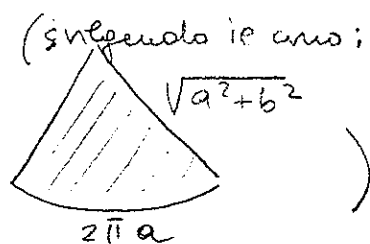 (svolgendo il cono:
√(a²+b²)
2πa
)